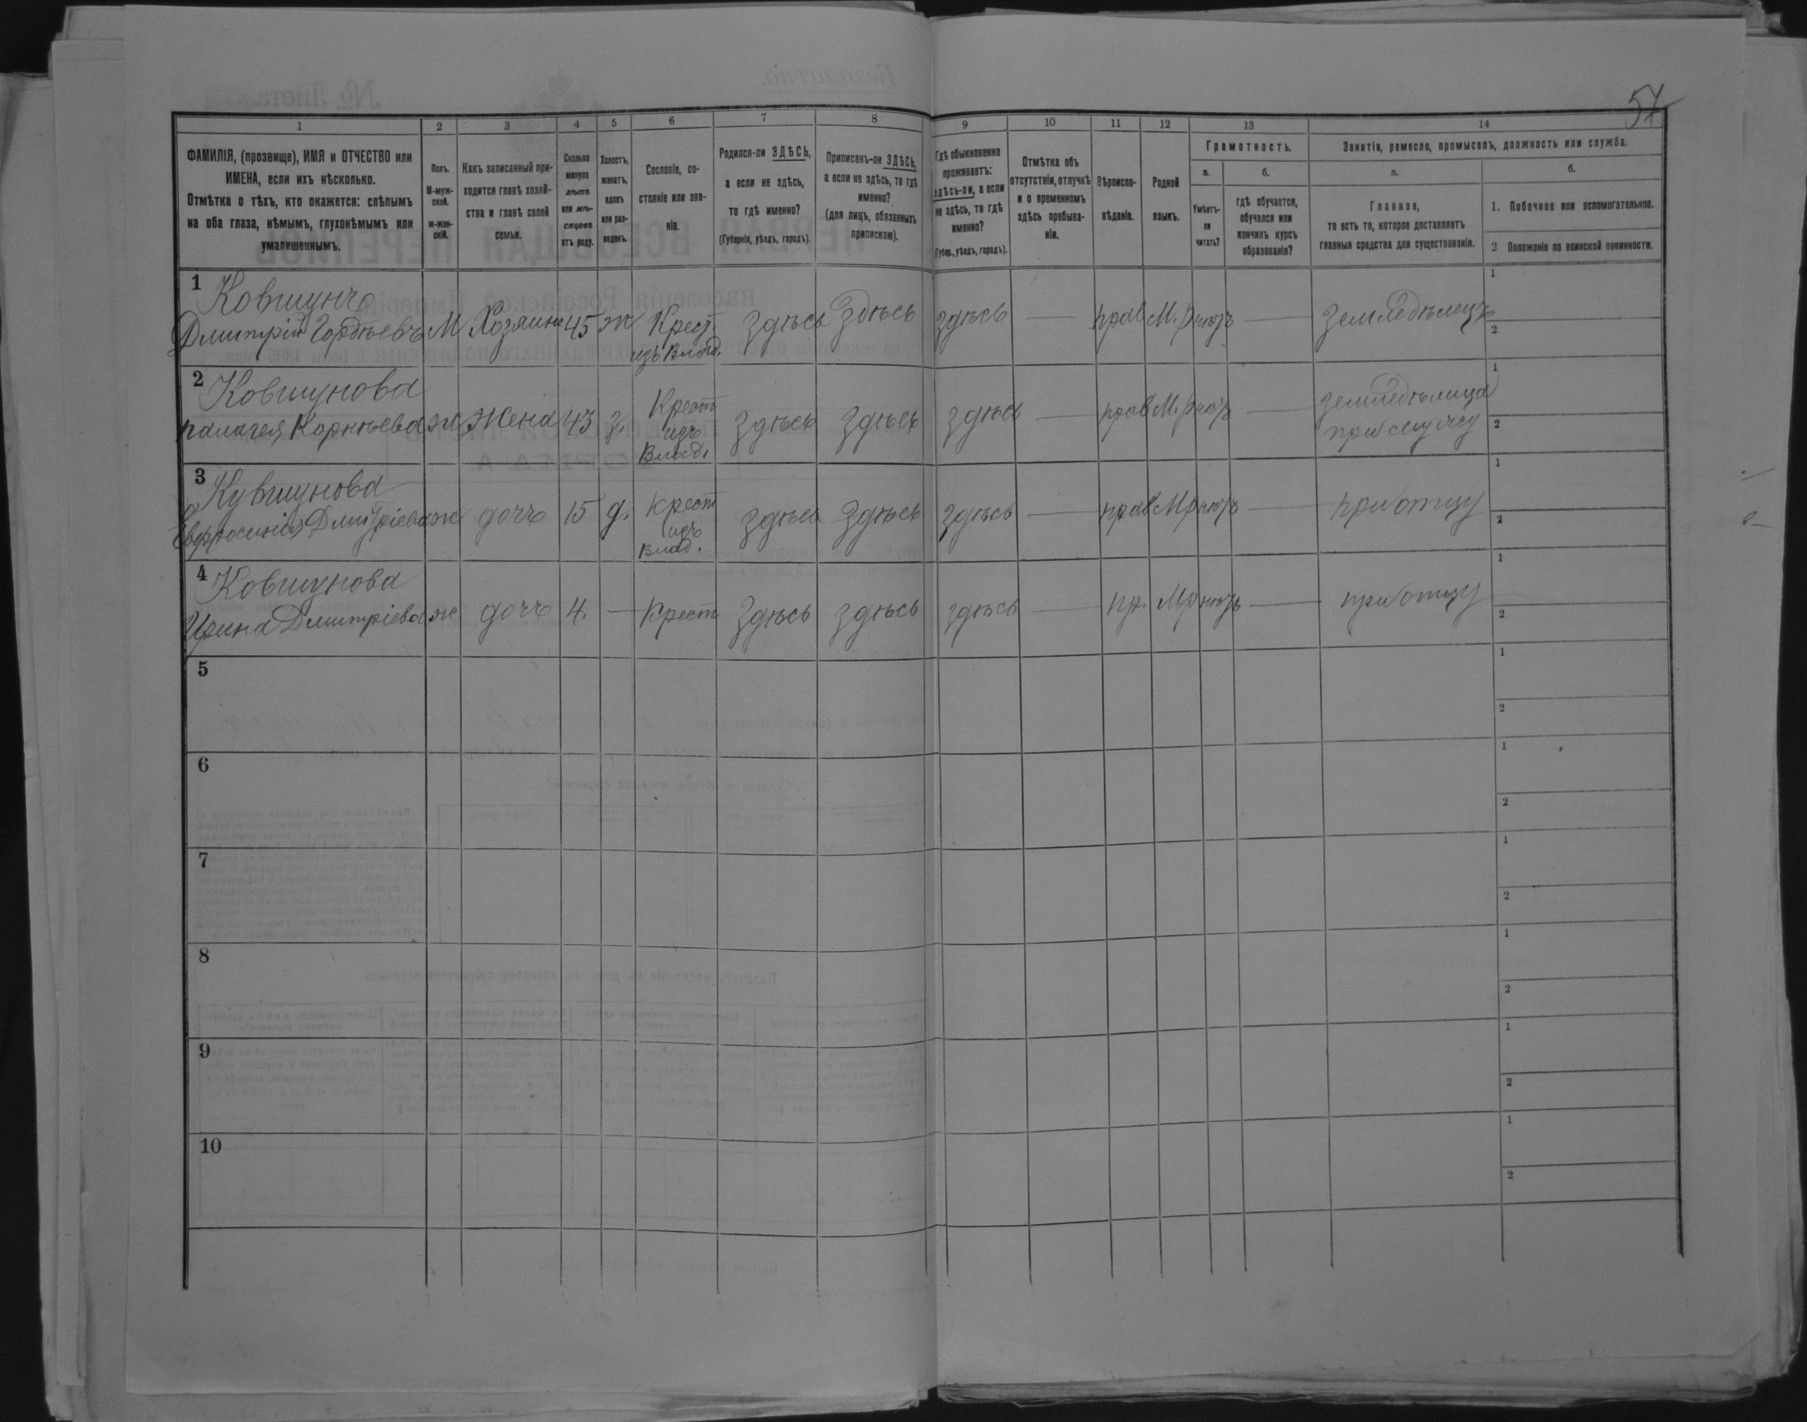 57
1 2 3 4 5 6 7 8 9 10 11 12 13 14
ФАМИЛІЯ, (прозвище), ИМЯ и ОТЧЕСТВО или
ИМЕНА, если ихъ нѣсколько.
Отмѣтка о тѣхъ, кто окажется: слѣпымъ
на оба глаза, нѣмымъ, глухонѣмымъ или
умалишеннымъ.
Полъ.
М-муж-
ской.
ж-жен-
скій.
Какъ записанный при-
ходится главѣ хозяй-
ства и главѣ своей
семьи.
Сколько
минуло
лѣтъ
или мѣ-
сяцевъ
отъ роду.
Холостъ,
женатъ,
вдовъ
или раз-
веденъ.
Сословіе, со-
стояніе или зва-
ніе.
Родился-ли ЗДѢСЬ,
а если не здѣсь,
то гдѣ именно?
(Губернія, уѣздъ, городъ).
Приписанъ-ли ЗДѢСЬ,
а если не здѣсь, то гдѣ
именно?
(для лицъ, обязанныхъ
припискою).
Гдѣ обыкновенно
проживаетъ:
здѣсь-ли, а если
не здѣсь, то гдѣ
именно?
(Губер., уѣздъ, городъ).
Отмѣтка объ
отсутствіи, отлучкѣ
и о временномъ
здѣсь пребыва-
ніи.
Вѣроиспо-
вѣданіе.
Родной
языкъ.
Грамотность.
а.
Умѣетъ-
ли
читать?
б.
гдѣ обучается,
обучался или
кончилъ курсъ
образованія?
Занятіе, ремесло, промыселъ, должность или служба.
а.
Главное,
то есть то, которое доставляетъ
главныя средства для существованія.
б.
1. Побочное или вспомогательное.
2 Положеніе по воинской повинности.
1 Ковшунъ
Дмитрій Гордѣевъ М Хозяинъ 45 ж Крест. изъ Влад. здѣсь здѣсь здѣсь — прав М.р нѣтъ — земледѣлецъ 1 2
2 Ковшунова
Палагея Корнѣева ж жена 43 з. Крест изъ Влад. здѣсь здѣсь здѣсь — прав М.р нѣтъ — земледѣлица при мужу 1 2
3 Кувшунова
Евфросинія Дмитріева ж дочь 15 д. Крест изъ Влад. здѣсь здѣсь здѣсь — прав Мр нѣтъ — при отцу 1 2
4 Ковшунова
Ирина Дмитріева ж дочь 4. — Крест здѣсь здѣсь здѣсь — пр. Мр нѣтъ — при отцу 1 2
5 1 2
6 1 2
7 1 2
8 1 2
9 1 2
10 1 2